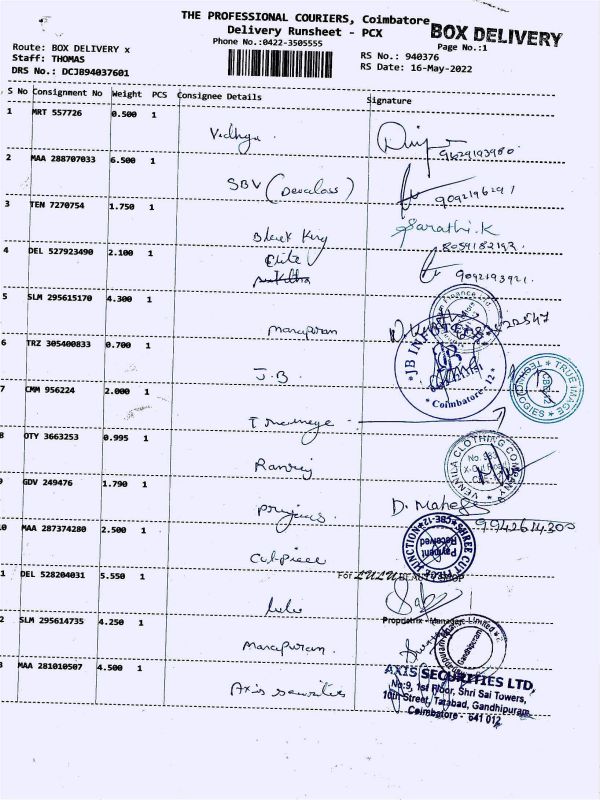 THE PROFESSIONAL COURIERS, Coimbatore
Delivery Runsheet - PCX
BOX DELIVERY
Phone No.:0422-3505555
Page No.:1
Route: BOX DELIVERY x
Staff: THOMAS
DRS No.: DCJ894037601
RS No.: 940376
RS Date: 16-May-2022
S No Consignment No Weight PCS Consignee Details Signature
1 MRT 557726 0.500 1
Vidhya
9629193980
2 MAA 288707033 6.500 1
SBV
9092196291
3 TEN 7270754 1.750 1
Black King
Sarathi.K
8059182192
4 DEL 527923490 2.100 1
Elite
9092193921
5 SLM 295615170 4.300 1
Manapuram
6 TRZ 305400833 0.700 1
J.B
JB INF
Coimbatore - 12
7 CMM 956224 2.000 1
TRUE IMAGE
8 OTY 3663253 0.995 1
VENNILA CLOTHING COMPANY
No. 383
9 GDV 249476 1.790 1
D. Mahes
9942614300
0 MAA 287374280 2.500 1
Cutpiece
SHREE CUT PIECE JUNCTION CBE-12
Payment
Received
1 DEL 528204031 5.550 1
Lulu
For LULU BEAUTY SHOP
Proprietrix - Manager
2 SLM 295614735 4.250 1
Manapuram
Gandhipuram
3 MAA 281010507 4.500 1
Axis securities
AXIS SECURITIES LTD,
No:9, 1st Floor, Shri Sai Towers,
10th Street, Tatabad, Gandhipuram,
Coimbatore - 641 012